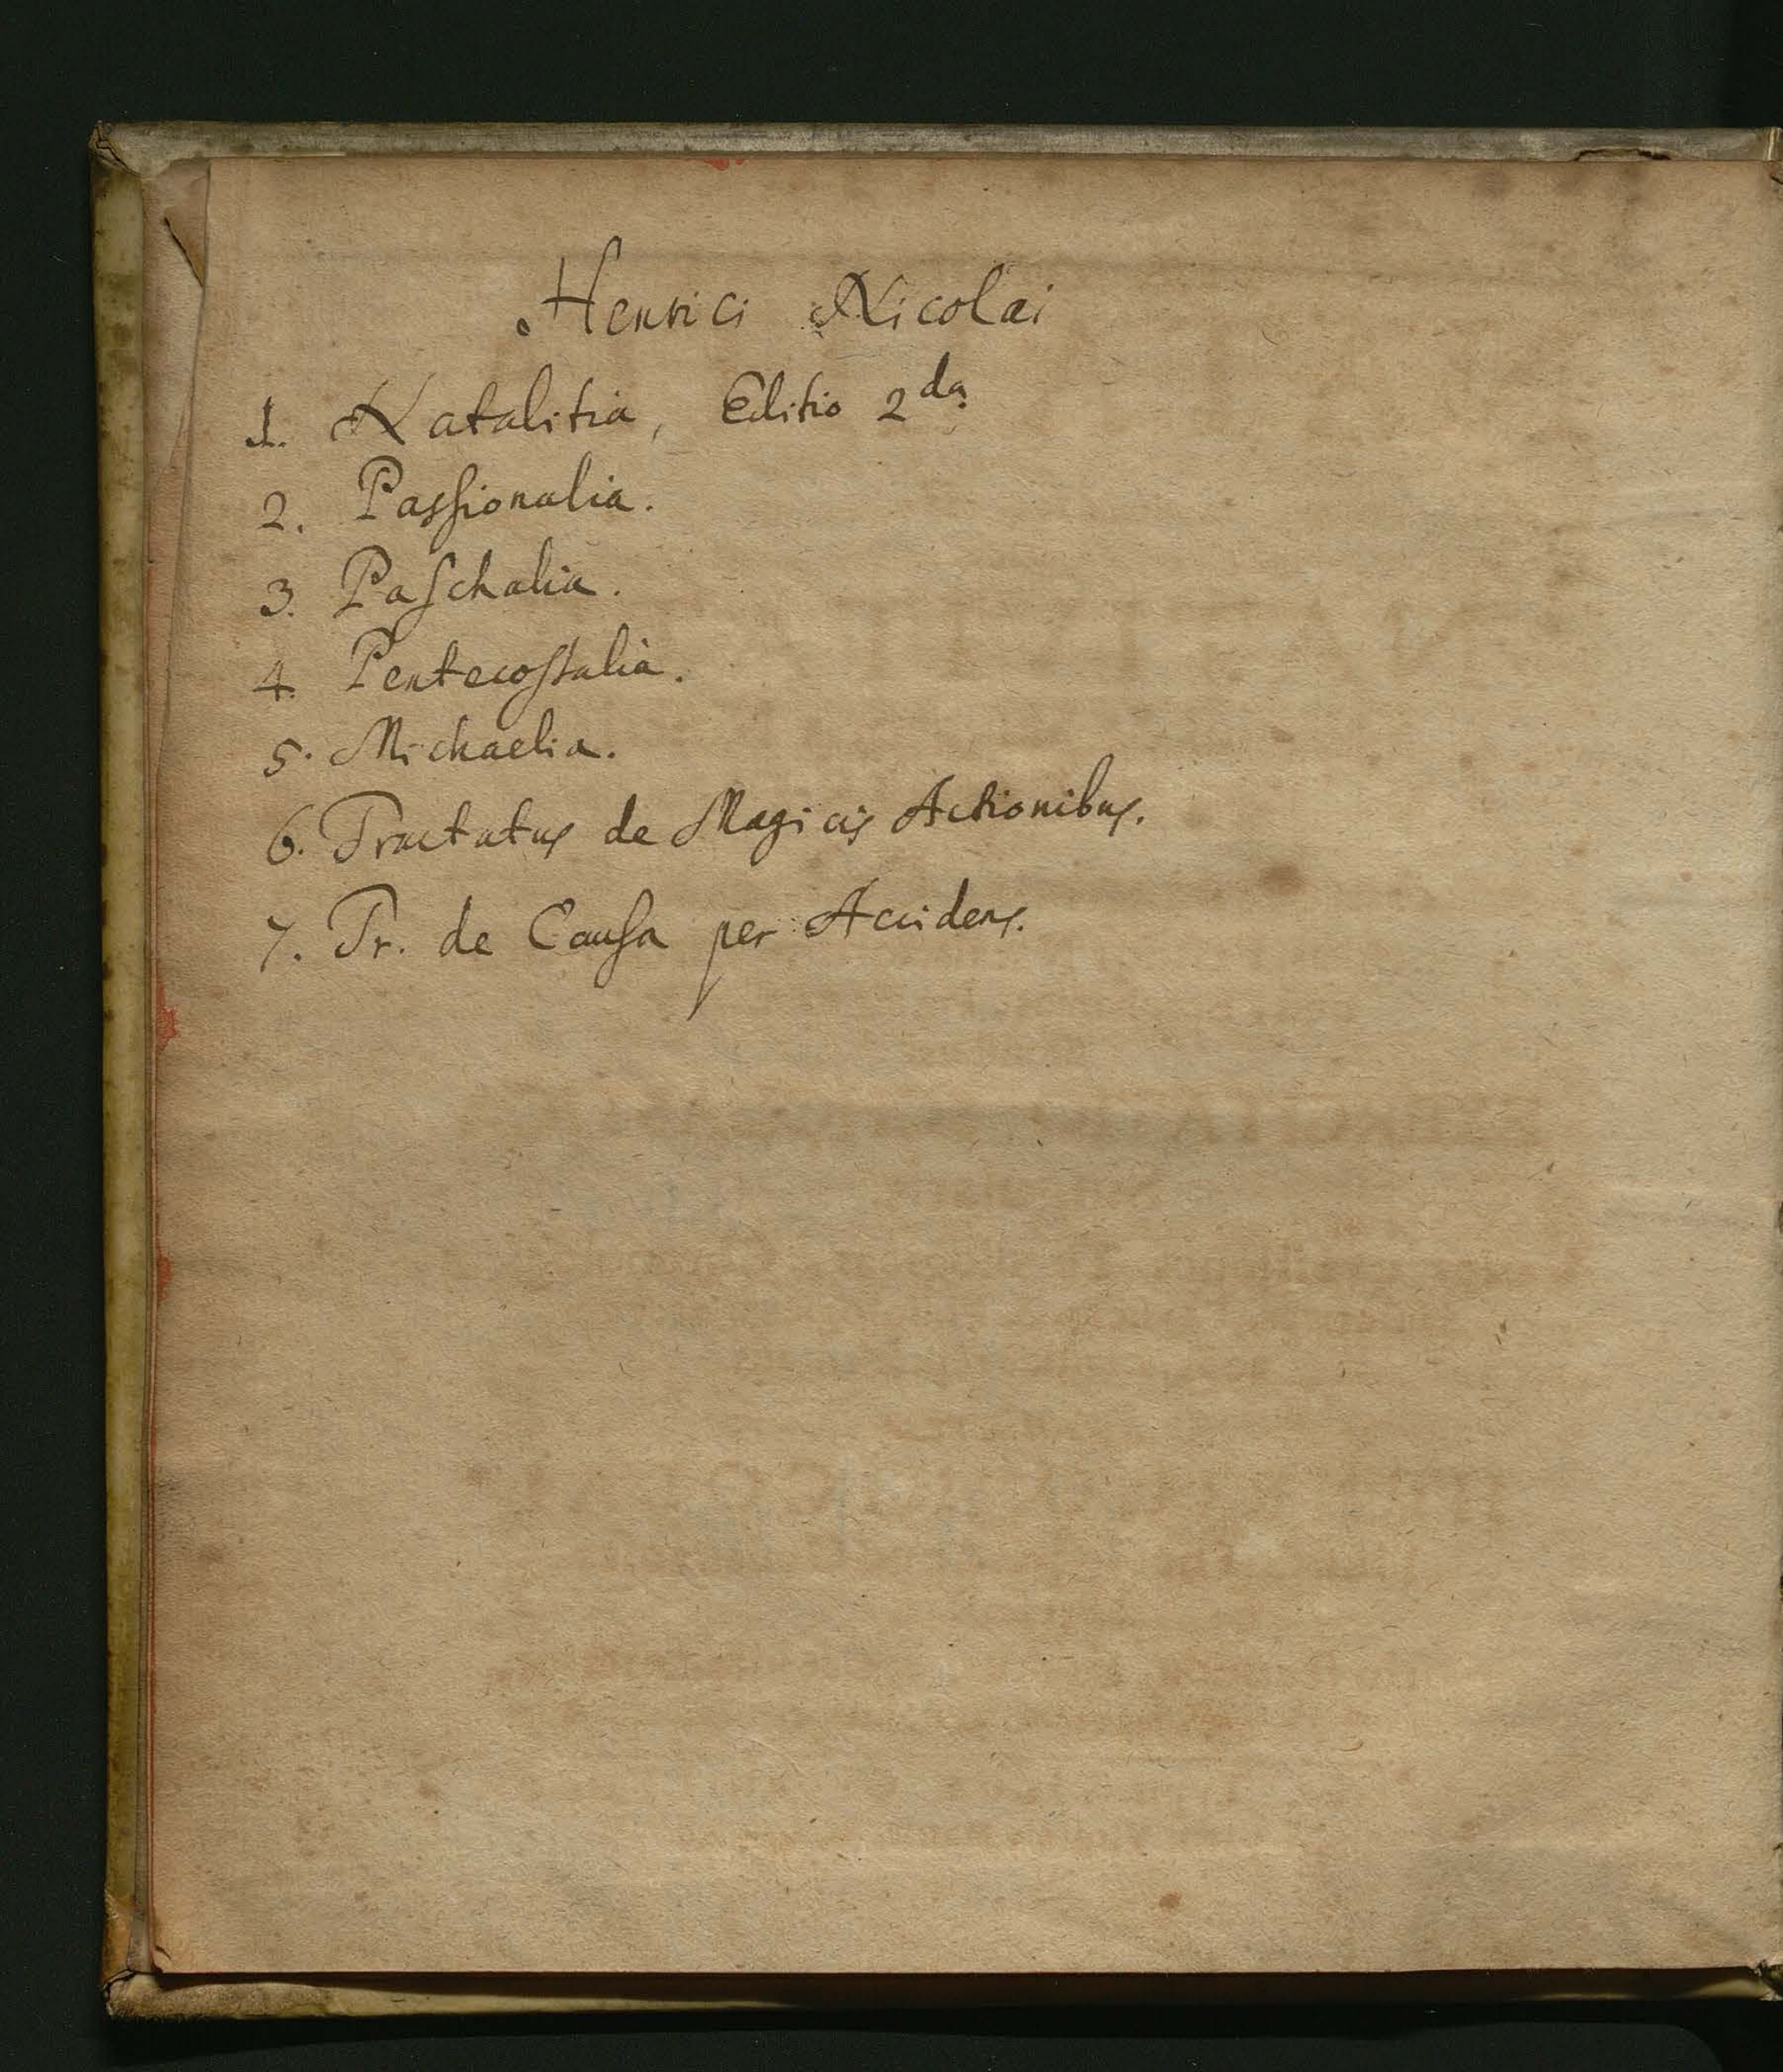 Henrici Nicolai
1. Natalitia, Editio 2da
2. Paſſionalia.
3. Paſchalia.
4. Pentecoſtalia.
5. Michaelia.
6. Tractatus de Magicis Actionibus.
7. Tr. de Cauſa per Accidens.